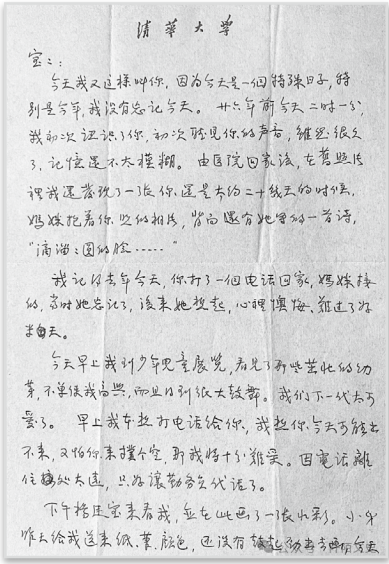 清華大學
宝：：
今天我又这样叫你，因为今天是一個特殊日子，特
别是今年，我没有忘记今天。廿六年前今天二时一分，
我初次认识了你，初次聽見你的声音，雖然很久
了，记憶還不太模糊。由医院回家後，在舊照片
裡我還發現了一张你還是大约二十幾天的时候，
媽媽抱着你照的相片，背面還有她写的一首诗，
“滴溜：圆的脸……”
我记得去年今天，你打了一個电话回家，媽媽接
的，当时她忘记了，後来她想起，心裡懊悔，難过了好
半天。
今天早上我到少年儿童展览，看見了那些茁壮的幼
苗，不单使我高興，而且得到很大鼓舞。我们下一代太可
爱了。早上我本想打电话给你，我想你今天可能出
不来，又怕你来撲个空，那我将十分難受。因電话離
住處太遠，只好讓勤务员代话了。
下午
来看我，並在此画了一张水彩。小弟
昨天给我送来纸、筆、颜色，還没有
今天